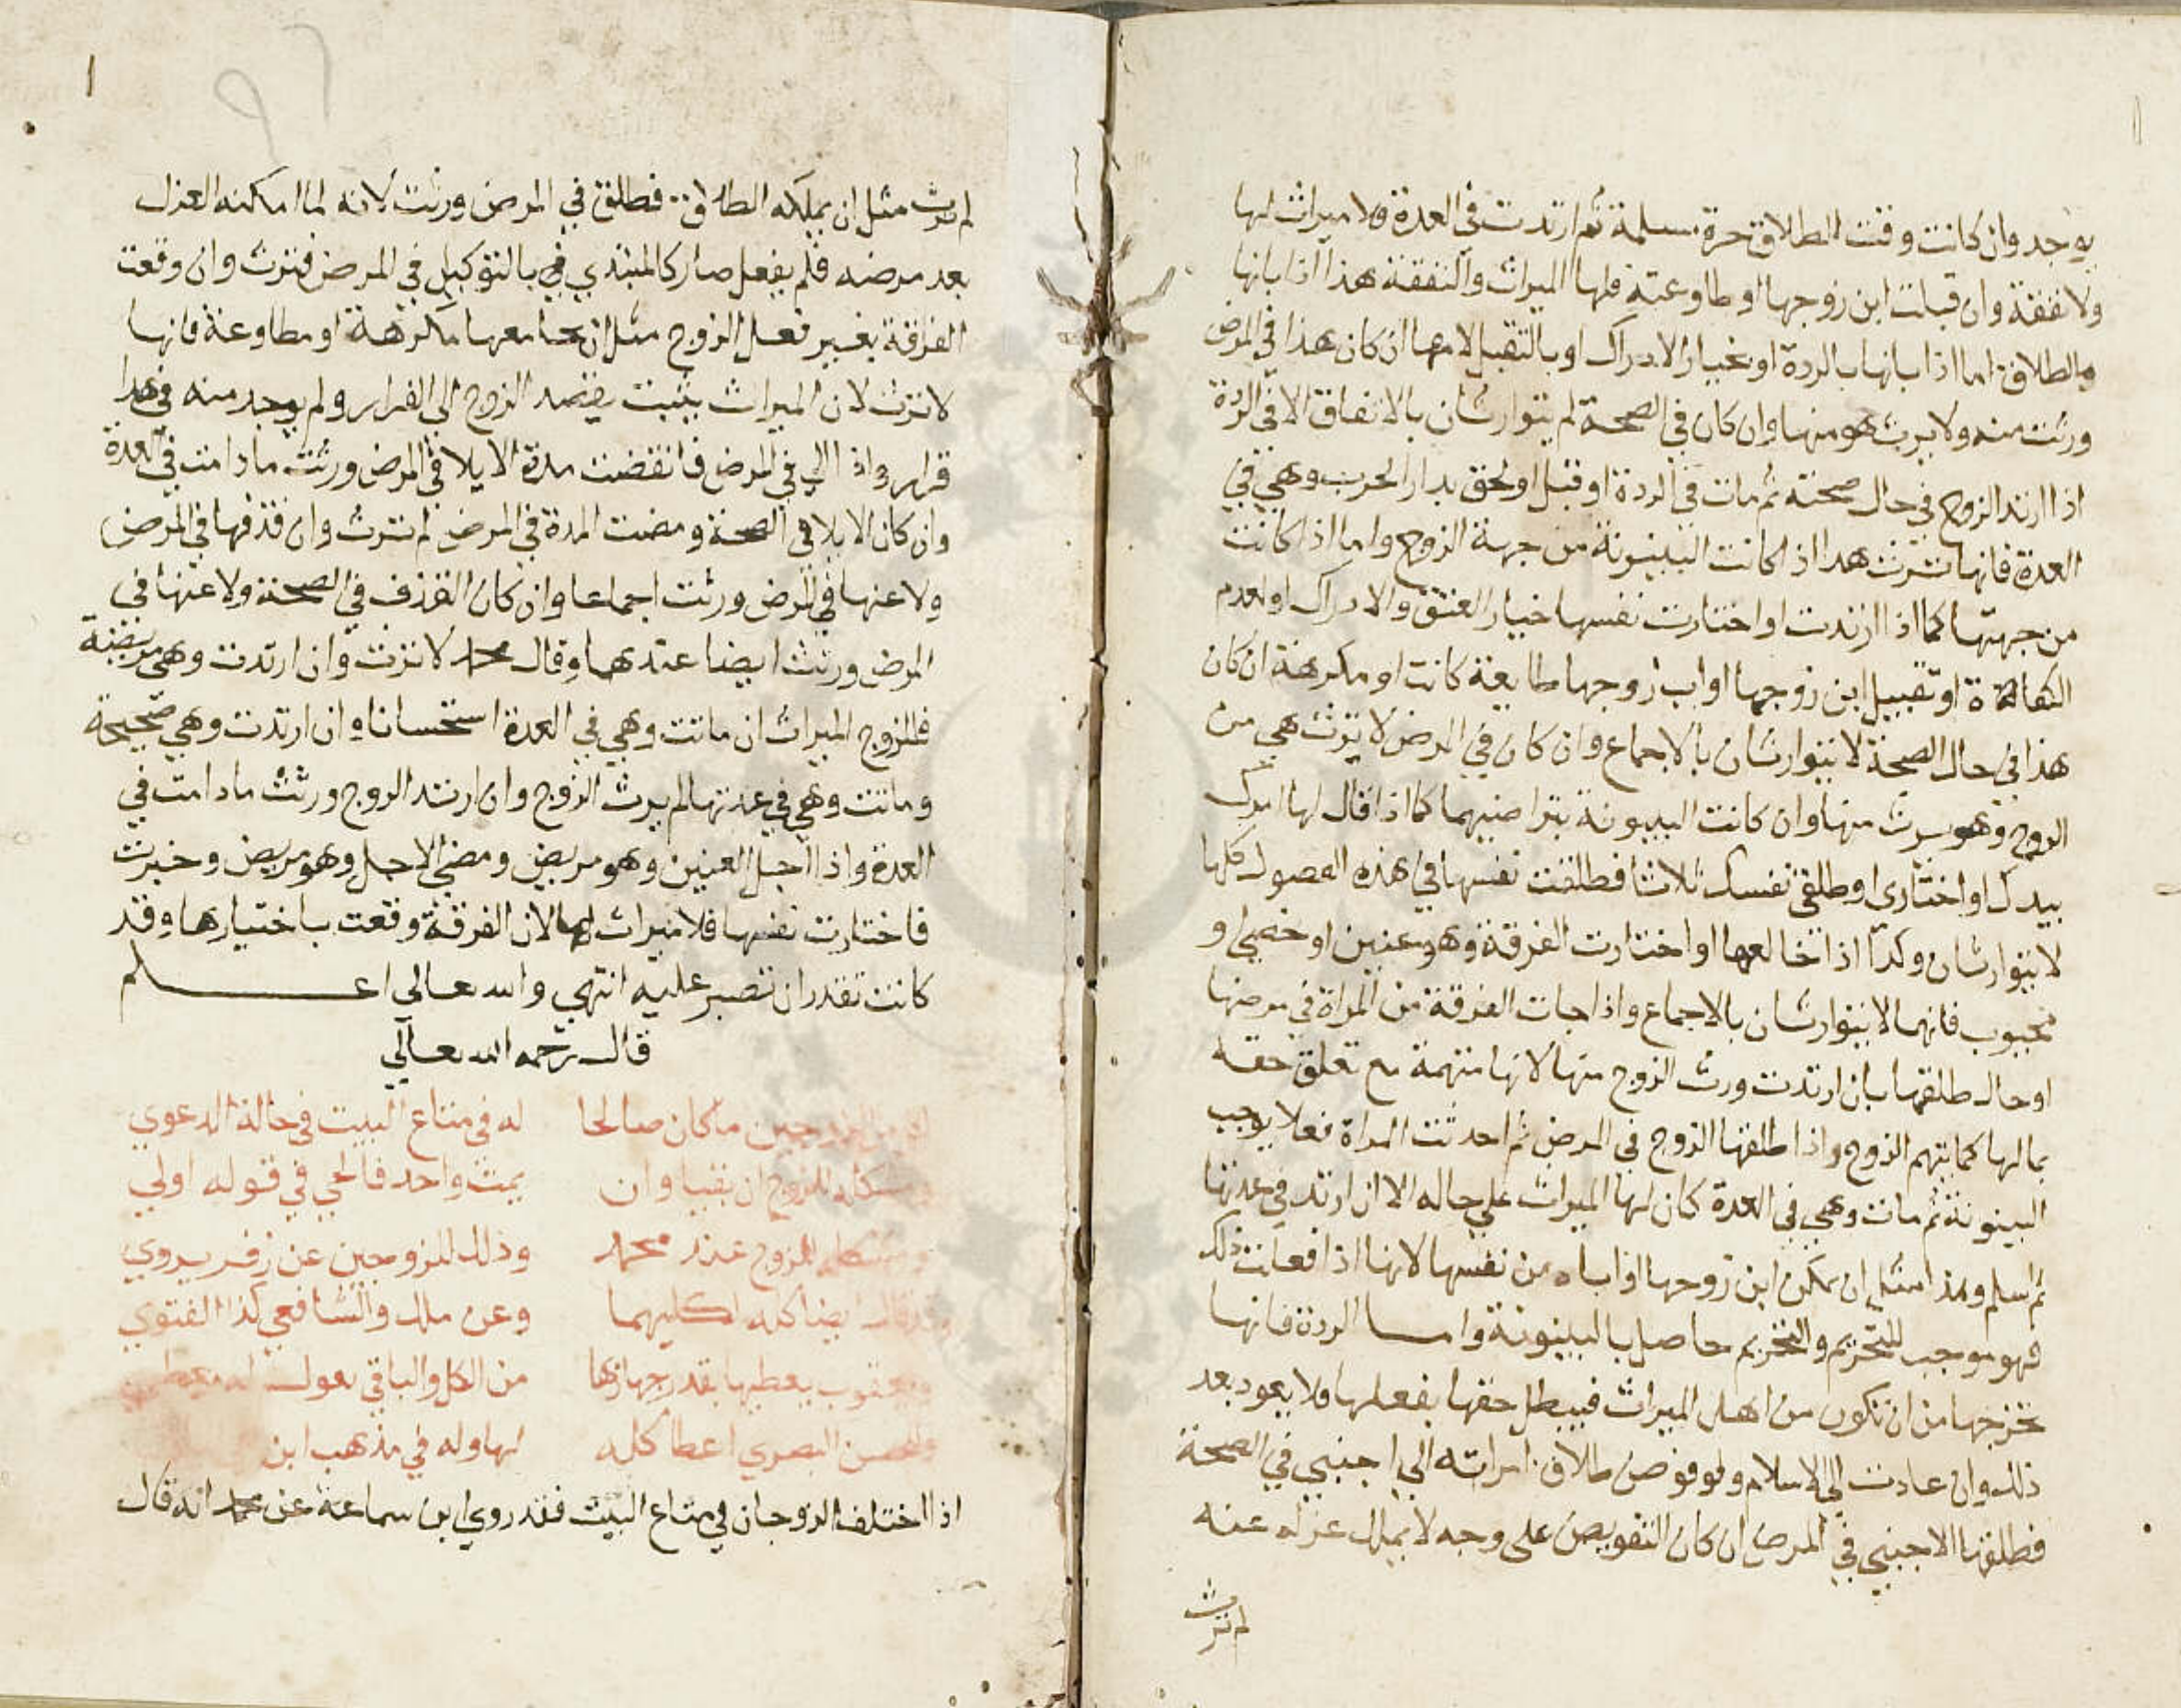 يوجد وان كانت وقت الطلاق حرة مسلمة ثم ارتدت في العدة فلا ميراث لها
ولا نفقة وان قبلت ابن زوجها او طاوعته فلها الميراث والنفقة هذا اذا ابانها
بالطلاق اما اذا بانها بالردة او بخيار الادراك او بالتقبيل لامها ان كان هذا في المرض
ورثت منه ولا يرث هو منها وان كان في الصحة لم يتوارثان بالاتفاق الا في الردة
اذا ارتد الزوج في حال صحته ثم مات في الردة او قتل او لحق بدار الحرب وهي في
العدة فانها ترث هدا اذا كانت البينونة من جهة الزوج واما اذا كانت
من جهتها كما اذا ارتدت او اختارت نفسها خيار العتق والادراك او لعدم
الكفاة او تقبيل ابن زوجها او اب زوجها طايعة كانت او مكرهة ان كان
هذا في حال الصحة لا يتوارثان بالاجماع وان كان في المرض لا ترث هي من
الزوج وهو يرث منها وان كانت البينونة بتراضيهما كما اذا قال لها امرك
بيدك او اختاري او طلقي نفسك ثلاثا فطلقت نفسها في هذه الفصول كلها
لا يتوارثان وكدا اذا خالعها او اختارت الفرقة وهو عنين او خصي او
مجبوب فانهما لا يتوارثان بالاجماع واذا جات الفرقة من المراة في مرضها
او حال طلقها بان ارتدت ورث الزوج منها لانها متهمة مع تعلق حقه
بمالها كما يتهم الزوج واذا طلقها الزوج في المرض ثم احدثت المراة فعلا يوجب
البينونة ثم مات وهي في العدة كان لها الميراث على حاله الا ان ارتد في عدتها
ثم اسلم وهذا مثل ان تمكن ابن زوجها او اباه من نفسها لانها اذا فعلت ذلك
فهو موجب للتحريم والتحريم حاصل بالبينونة واما الردة فانها
تخرجها من ان تكون من اهل الميراث فيبطل حقها بفعلها فلا يعود بعد
ذلك وان عادت الى الاسلام ولو فوض طلاق امراته الى اجنبي في الصحة
فطلقها الاجنبي في المرض ان كان التفويض على وجه لا يملك عزله عنه
لم ترث
لم ترث مثل ان يملكه الطلاق فطلق في المرض ورثت لانه لما امكنه العزل
بعد مرضه فلم يفعل صار كالمبتدي بالتوكيل في المرض فترث وان وقعت
الفرقة بغير فعل الزوج مثل ان جامعها مكرهة او مطاوعة فانها
لا ترث لان الميراث يثبت بقصد الزوج الى الفرار ولم يوجد منه في هدا
فرار واذا الي في المرض فانقضت مدة الايلا في المرض ورثت ما دامت في العدة
وان كان الايلا في الصحة ومضت المدة في المرض لم ترث وان قذفها في المرض
ولاعنها في المرض ورثت اجماعا وان كان القذف في الصحة ولاعنها في
المرض ورثت ايضا عندهما وقال محمد لا ترث وان ارتدت وهي مريضة
فللزوج الميراث ان ماتت وهي في العدة استحسانا وان ارتدت وهي صحيحة
وماتت وهي في عدتها لم يرث الزوج وان ارتد الزوج ورثت ما دامت في
العدة واذا اجل العنين وهو مريض ومضى الاجل وهو مريض وخيرت
فاختارت نفسها فلا ميراث لها لان الفرقة وقعت باختيارها وقد
كانت تقدر ان تصبر عليه انتهي والله تعالى اعلم
قال رحمه الله تعالى
الزوجين ما كان صالحا له في متاع البيت في حالة الدعوي
كله للزوج ان بقيا وان يمت واحد فالحي في قوله اولي
للزوج عند محمد وذلك للزوجين عن زفر يروي
ايضا كله لكليهما وعن مالك والشافعي كذا الفتوي
ويعقوب يعطيها بقدر جهازها من الكل والباقي يعول
والحسن البصري اعطا كله لها وله في مذهب ابن
اذا اختلف الزوجان في متاع البيت فقد روي ابن سماعة عن محمد انه قال